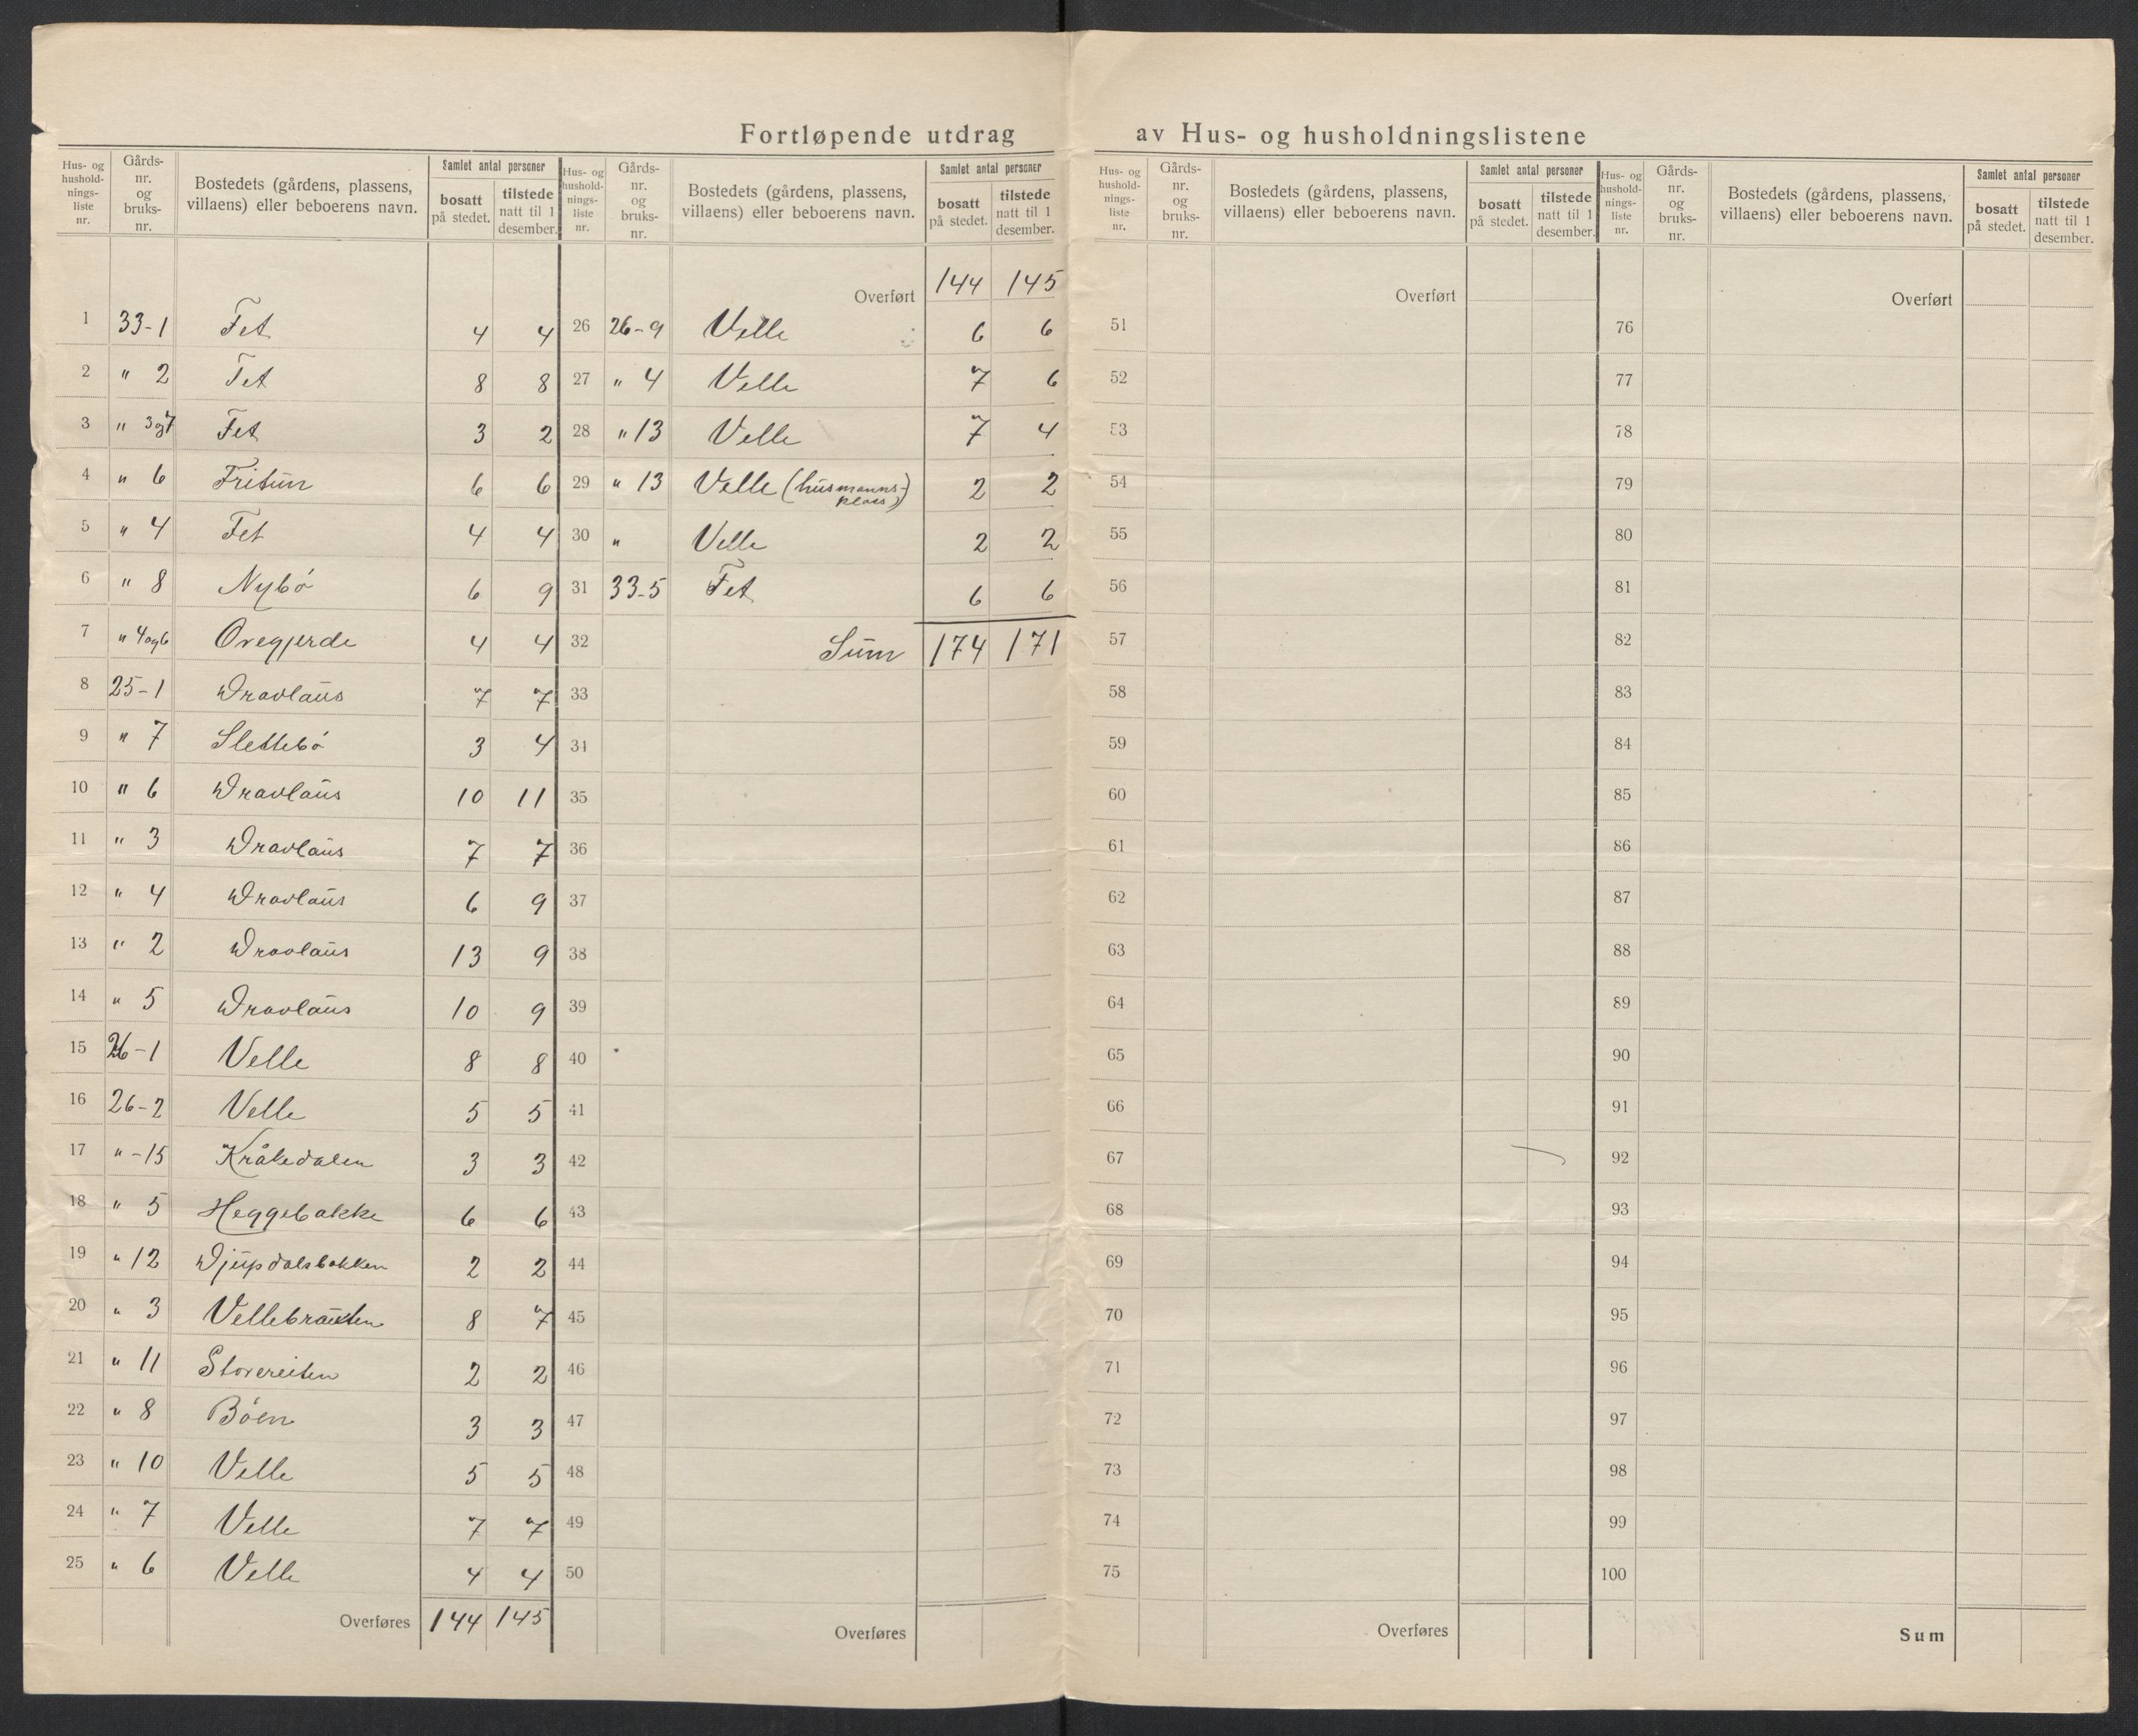 Fortløpende utdrag av Hus- og husholdningslistene
Hus- og husholdnings-liste nr. | Gårds-nr. og bruks-nr. | Bostedets (gårdens, plassens, villaens) eller beboerens navn. | Samlet antal personer | bosatt på stedet. | tilstede natt til 1 desember.
1 33-1 Fet 4 4
2 " 2 Fet 8 8
3 " 3og7 Fet 3 2
4 " 6 Fritun 6 6
5 " 4 Fet 4 4
6 " 8 Nybö 6 9
7 " 4og6 Ovegjerde 4 4
8 25-1 Dravlaus 7 7
9 " 7 Slettebö 3 4
10 " 6 Dravlaus 10 11
11 " 3 Dravlaus 7 7
12 " 4 Dravlaus 6 9
13 " 2 Dravlaus 13 9
14 " 5 Dravlaus 10 9
15 26-1 Velle 8 8
16 26-2 Velle 5 5
17 " -15 Kråkedalen 3 3
18 " 5 Heggebakke 6 6
19 " 12 Djupdalsbakken 2 2
20 " 3 8 7
21 " 11 Storereiten 2 2
22 " 8 Böen 3 3
23 " 10 Velle 5 5
24 " 7 Velle 7 7
25 " 6 Velle 4 4
Overføres 144 145
Hus- og husholdnings-liste nr. | Gårds-nr. og bruks-nr. | Bostedets (gårdens, plassens, villaens) eller beboerens navn. | Samlet antal personer | bosatt på stedet. | tilstede natt til 1 desember.
Overført 144 145
26 26-9 Velle 6 6
27 " 4 Velle 7 6
28 " 13 Velle 7 4
29 " 13 Velle (husmanns-
plass) 2 2
30 " Velle 2 2
31 33-5 Fet 6 6
32 Sum 174 171
33
34
35
36
37
38
39
40
41
42
43
44
45
46
47
48
49
50
Overføres
Hus- og husholdnings-liste nr. | Gårds-nr. og bruks-nr. | Bostedets (gårdens, plassens, villaens) eller beboerens navn. | Samlet antal personer | bosatt på stedet. | tilstede natt til 1 desember.
Overført
51
52
53
54
55
56
57
58
59
60
61
62
63
64
65
66
67
68
69
70
71
72
73
74
75
Overføres
Hus- og husholdnings-liste nr. | Gårds-nr. og bruks-nr. | Bostedets (gårdens, plassens, villaens) eller beboerens navn. | Samlet antal personer | bosatt på stedet. | tilstede natt til 1 desember.
Overført
76
77
78
79
80
81
82
83
84
85
86
87
88
89
90
91
92
93
94
95
96
97
98
99
100
Sum